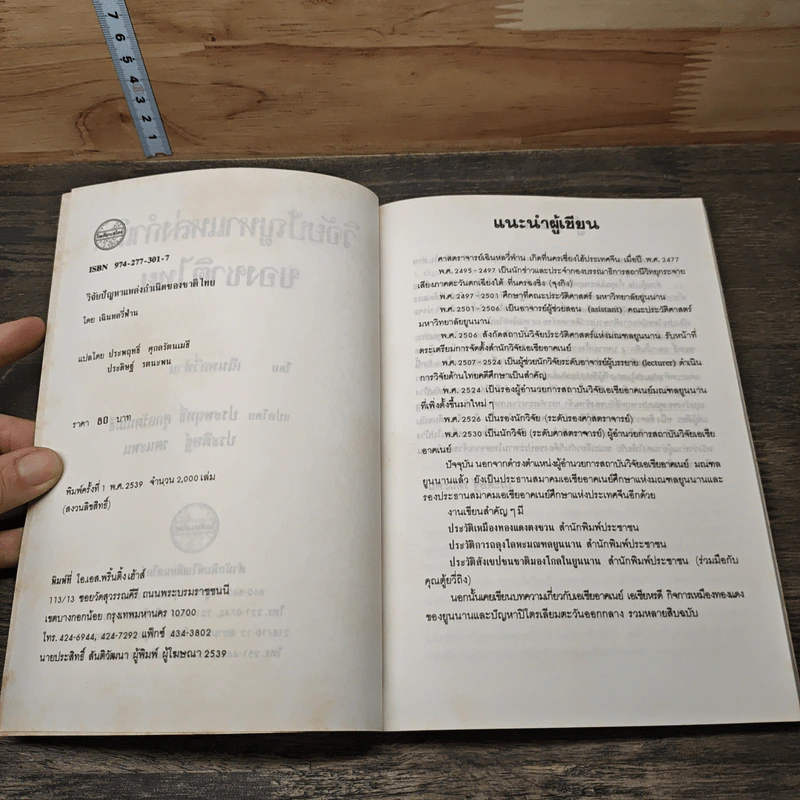 7 6 5 4 3 2 1
ISBN 974-277-301-7
วิจัยปัญหาแหล่งกำเนิดของชาติไทย
โดย เฉินหลวี่ฟ่าน
แปลโดย ประพฤทธิ์ ศุกลรัตนเมธี
ประดิษฐ์ รตนะพน
ราคา 80 บาท
พิมพ์ครั้งที่ 1 พ.ศ.2539 จำนวน 2,000 เล่ม
(สงวนลิขสิทธิ์)
พิมพ์ที่ โอ.เอส.พริ้นติ้ง เฮ้าส์
113/13 ซอยวัดสุวรรณคีรี ถนนพระบรมราชชนนี
เขตบางกอกน้อย กรุงเทพมหานคร 10700
โทร. 424-6944, 424-7292 แฟ็กซ์ 434-3802
นายประสิทธิ์ สันติวัฒนา ผู้พิมพ์ ผู้โฆษณา 2539
แนะนำผู้เขียน
ศาสตราจารย์เฉินหลวี่ฟ่าน เกิดที่นครเซี่ยงไฮ้ประเทศจีน เมื่อปี พ.ศ. 2477
พ.ศ. 2495-2497 เป็นนักข่าวและประจำกองบรรณาธิการสถานีวิทยุกระจาย
เสียงภาคตะวันตกเฉียงใต้ ที่นครฉงชิ่ง (จุงกิง)
พ.ศ. 2497-2501 ศึกษาที่คณะประวัติศาสตร์ มหาวิทยาลัยยูนนาน
พ.ศ. 2501-2506 เป็นอาจารย์ผู้ช่วยสอน (asistant) คณะประวัติศาสตร์
มหาวิทยาลัยยูนนาน
พ.ศ. 2506 สังกัดสถาบันวิจัยประวัติศาสตร์แห่งมณฑลยูนนาน รับหน้าที่
ตระเตรียมการจัดตั้งสำนักวิจัยเอเชียอาคเนย์
พ.ศ. 2507-2524 เป็นผู้ช่วยนักวิจัยระดับอาจารย์ผู้บรรยาย (lecturer) ดำเนิน
การวิจัยด้านไทยคดีศึกษาเป็นสำคัญ
พ.ศ. 2524 เป็นรองผู้อำนวยการสถาบันวิจัยเอเชียอาคเนย์มณฑลยูนนาน
ที่เพิ่งตั้งขึ้นมาใหม่ ๆ
พ.ศ. 2526 เป็นรองนักวิจัย (ระดับรองศาสตราจารย์)
พ.ศ. 2530 เป็นนักวิจัย (ระดับศาสตราจารย์) ผู้อำนวยการสถาบันวิจัยเอเชีย
อาคเนย์
ปัจจุบัน นอกจากดำรงตำแหน่งผู้อำนวยการสถาบันวิจัยเอเชียอาคเนย์ มณฑล
ยูนนานแล้ว ยังเป็นประธานสมาคมเอเชียอาคเนย์ศึกษาแห่งมณฑลยูนนานและ
รองประธานสมาคมเอเชียอาคเนย์ศึกษาแห่งประเทศจีนอีกด้วย
งานเขียนสำคัญ ๆ มี
ประวัติเหมืองทองแดงตงชวน สำนักพิมพ์ประชาชน
ประวัติการถลุงโลหะมณฑลยูนนาน สำนักพิมพ์ประชาชน
ประวัติสังเขปชนชาติมองโกลในยูนนาน สำนักพิมพ์ประชาชน (ร่วมมือกับ
คุณตู้ยวี่ถิง)
นอกนั้นเคยเขียนบทความเกี่ยวกับเอเชียอาคเนย์ เอเชียหรดี กิจการเหมืองทองแดง
ของยูนนานและปัญหาปิโตรเลียมตะวันออกกลาง รวมหลายสิบฉบับ